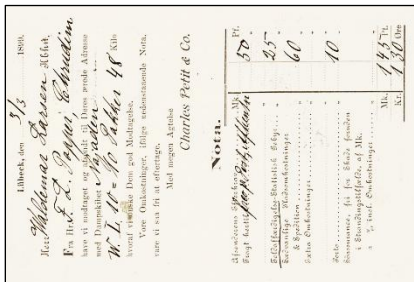 Lübeck, den 3/3 1899.
Herrn Waldemar Larsen Kbhvn
Fra Hr. F. L. Popper Chrudim
have vi modtaget og afsendt til Deres ærede Adresse
med Dampskibet Najaden
W. L. 1 = 10 Pakker 48 Kilo
hvoraf vi ønske Dem god Modtagelse.
Vore Omkostninger, ifølge nedenstaaende Nota,
være vi saa fri at eftertage.
Med megen Agtelse
Charles Petit & Co.
Nota.
Mk. Pf.
Afsenderens Efterkrav
Fragt hertil 50
Toldfærdigelse Statistik Geby. 25
Sædvanlige Pladsomkostninger
& Spedition 60
Extra Omkostninger
Porto 10
Assurance, fri fra Skade foruden
i Strandingstilfælde, af Mk.
à % incl. Omkostninger
Mk. 1 45 Pf.
Kr. 1 30 Øre